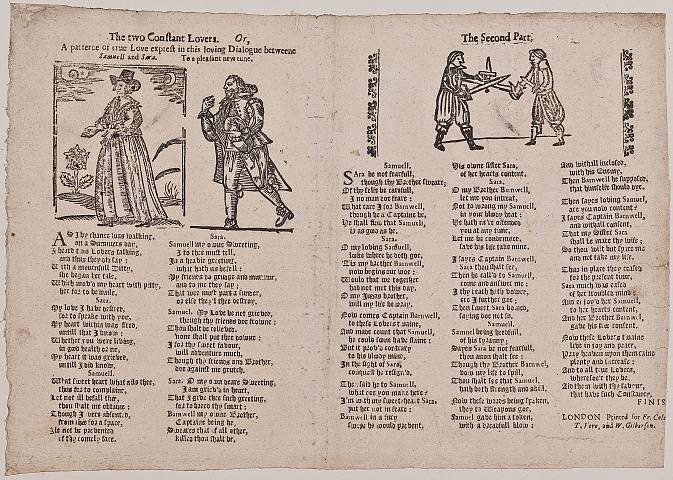 The two Constant Lovers. Or,
A patterne of true Love exprest in this loving Dialogue betweene
Samuell and Sara. To a pleasant new tune.
AS I by chance was walking,
on a Summers day,
I heard two Lovers talking,
and thus they did say:
With a mournfull Ditty,
she began her tale,
Which mov'd my heart with pitty,
her for to bewaile.
Sara.
My love I have desired,
for to speake with you,
My heart within was fired,
untill that I know:
Whether you were living,
in good health or no,
My heart it was grieved,
untill I did know.
Samuell.
What sweet heart what ails thee,
thus for to complaine,
Let not ill befall thee,
thou shalt me obtaine:
Though I were absented,
from thee for a space,
Is not be prevented
if thy comely face.
Sara.
Samuell my owne Sweeting,
I to thee must tell,
In a heavie greeting,
what hath me befell:
My friends do grudge and murmur,
and to me they say:
That wee must part asunder,
or else they'l thee destroy.
Samuel. My Love be not grieved,
though thy friends doe frowne:
Thou shalt be relieved,
none shall put thee downe:
I for thy sweet favour,
will adventure much,
Though thy friends and Brother,
doe against me grutch.
Sara. O my own heart Sweeting,
I am griev'd in heart,
That I give thee such greeting,
for to beare thy smart:
Banwell my owne Brother,
Captaine being he,
Sweares that if all other,
killed thou shalt be,
The Second Part,
Samuell.
Sara be not fearfull,
though thy Brother sweare;
Of thy selfe be carefull,
I no man doe feare:
What care I for Banwell,
though he a Captaine be,
He shall find that Samuell,
is as good as he.
Sara.
O my loving Samuell,
looke where he doth goe,
'Tis my brother Banwell,
now begins our woe:
Would that we together
had not met this day,
O my Judas brother,
will my life betray.
Now comes Captain Banwell,
to these Lovers twaine,
And made count that Samuell,
he could soone have slaine:
But it prov'd contrary
to his bloudy mind,
In the sight of Sara,
conquest he resign'd.
The said he to Samuell,
what doe you make here?
I'm with my sweet-heart Sara,
put her not in feare:
Banwell in a fury
swore he would prevent,
His owne sister Sara,
of her hearts content.
Sara.
O my Brother Banwell,
let me you intreat,
Not to wrong my Samuell,
in your bloudy heat:
He hath ne're offended
you at any time,
Let me be condemned,
save his life take mine.
I sayes Captain Banwell,
Sara thou shalt see,
Then he call'd to Samuell,
come and answer me:
I thy death hath vowed,
ere I further goe:
Then sweet Sara bowed,
saying doe not so.
Samuell
Samuel being heedfull,
of his Tyranny;
Sayes Sara be not fearfull,
thou anon shalt see:
Though thy Brother Banwel,
vow my life to spill,
Thou shalt see that Samuel,
hath both strength and skill.
Now these words being spoken,
they to Weapons goe,
Samuel gave him a token,
with a dreadfull blow:
And withall inclosed,
with his Enemy,
Then Banwell he supposed,
that himselfe should dye.
Then sayes loving Samuel,
are you now content?
I sayes Captain Banwell,
and withall consent,
That my Sister Sara
shall be made thy wife;
So thou wilt but spare me
and not take my life.
Thus in place they ceased
for the present time,
Sara much was eased
of her troubled mind:
And enjoy'd her Samuel,
to her hearts content,
And her Brother Banwel,
gave his free consent.
Now these Lovers twaine
live in joy and peace,
Pray heaven upon them raine
plenty and increase:
And to all true Lovers,
wheresoe're they be,
And them with thy favour,
that have such Constancy,
FINIS
LONDON Printed for Fr. Cole
T. Vere, and W. Gilberson.